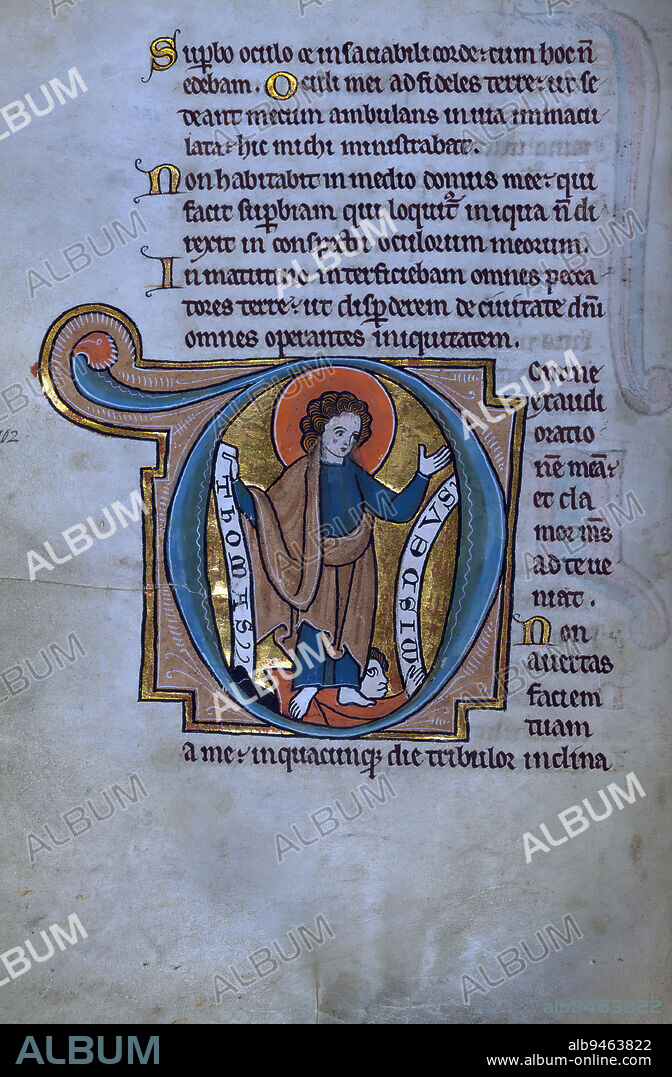 Superbo oculo ⁊ insaciabili corde ⁊ cum hoc n̄
edebam. Oculi mei ad fideles terre ⁊ ut se
deant mecum ambulans in uia immacu
lata ⁊ hic michi ministrabat.
Non habitabit in medio domus mee ⁊ qui
facit sup̄biam qui loquit᷑ iniqua n̄ di
rexit in conspectu oculorum meorum.
In matutino interficiebam omnes pecca
tores terre ⁊ ut disp̄derem de ciuitate dn̄i
omnes operantes iniquitatem.
Domine
exaudi
oratio
nē meā ⁊
et cla
mor m̄s
ad te ue
niat.
Non
auertas
faciem
tuam
a me ⁊ in quacunq; die tribulor inclina
THOMAS
MISDEVS
102
ALBUM
alb9463822
ALBUM
alb9463822
www.album-online.com